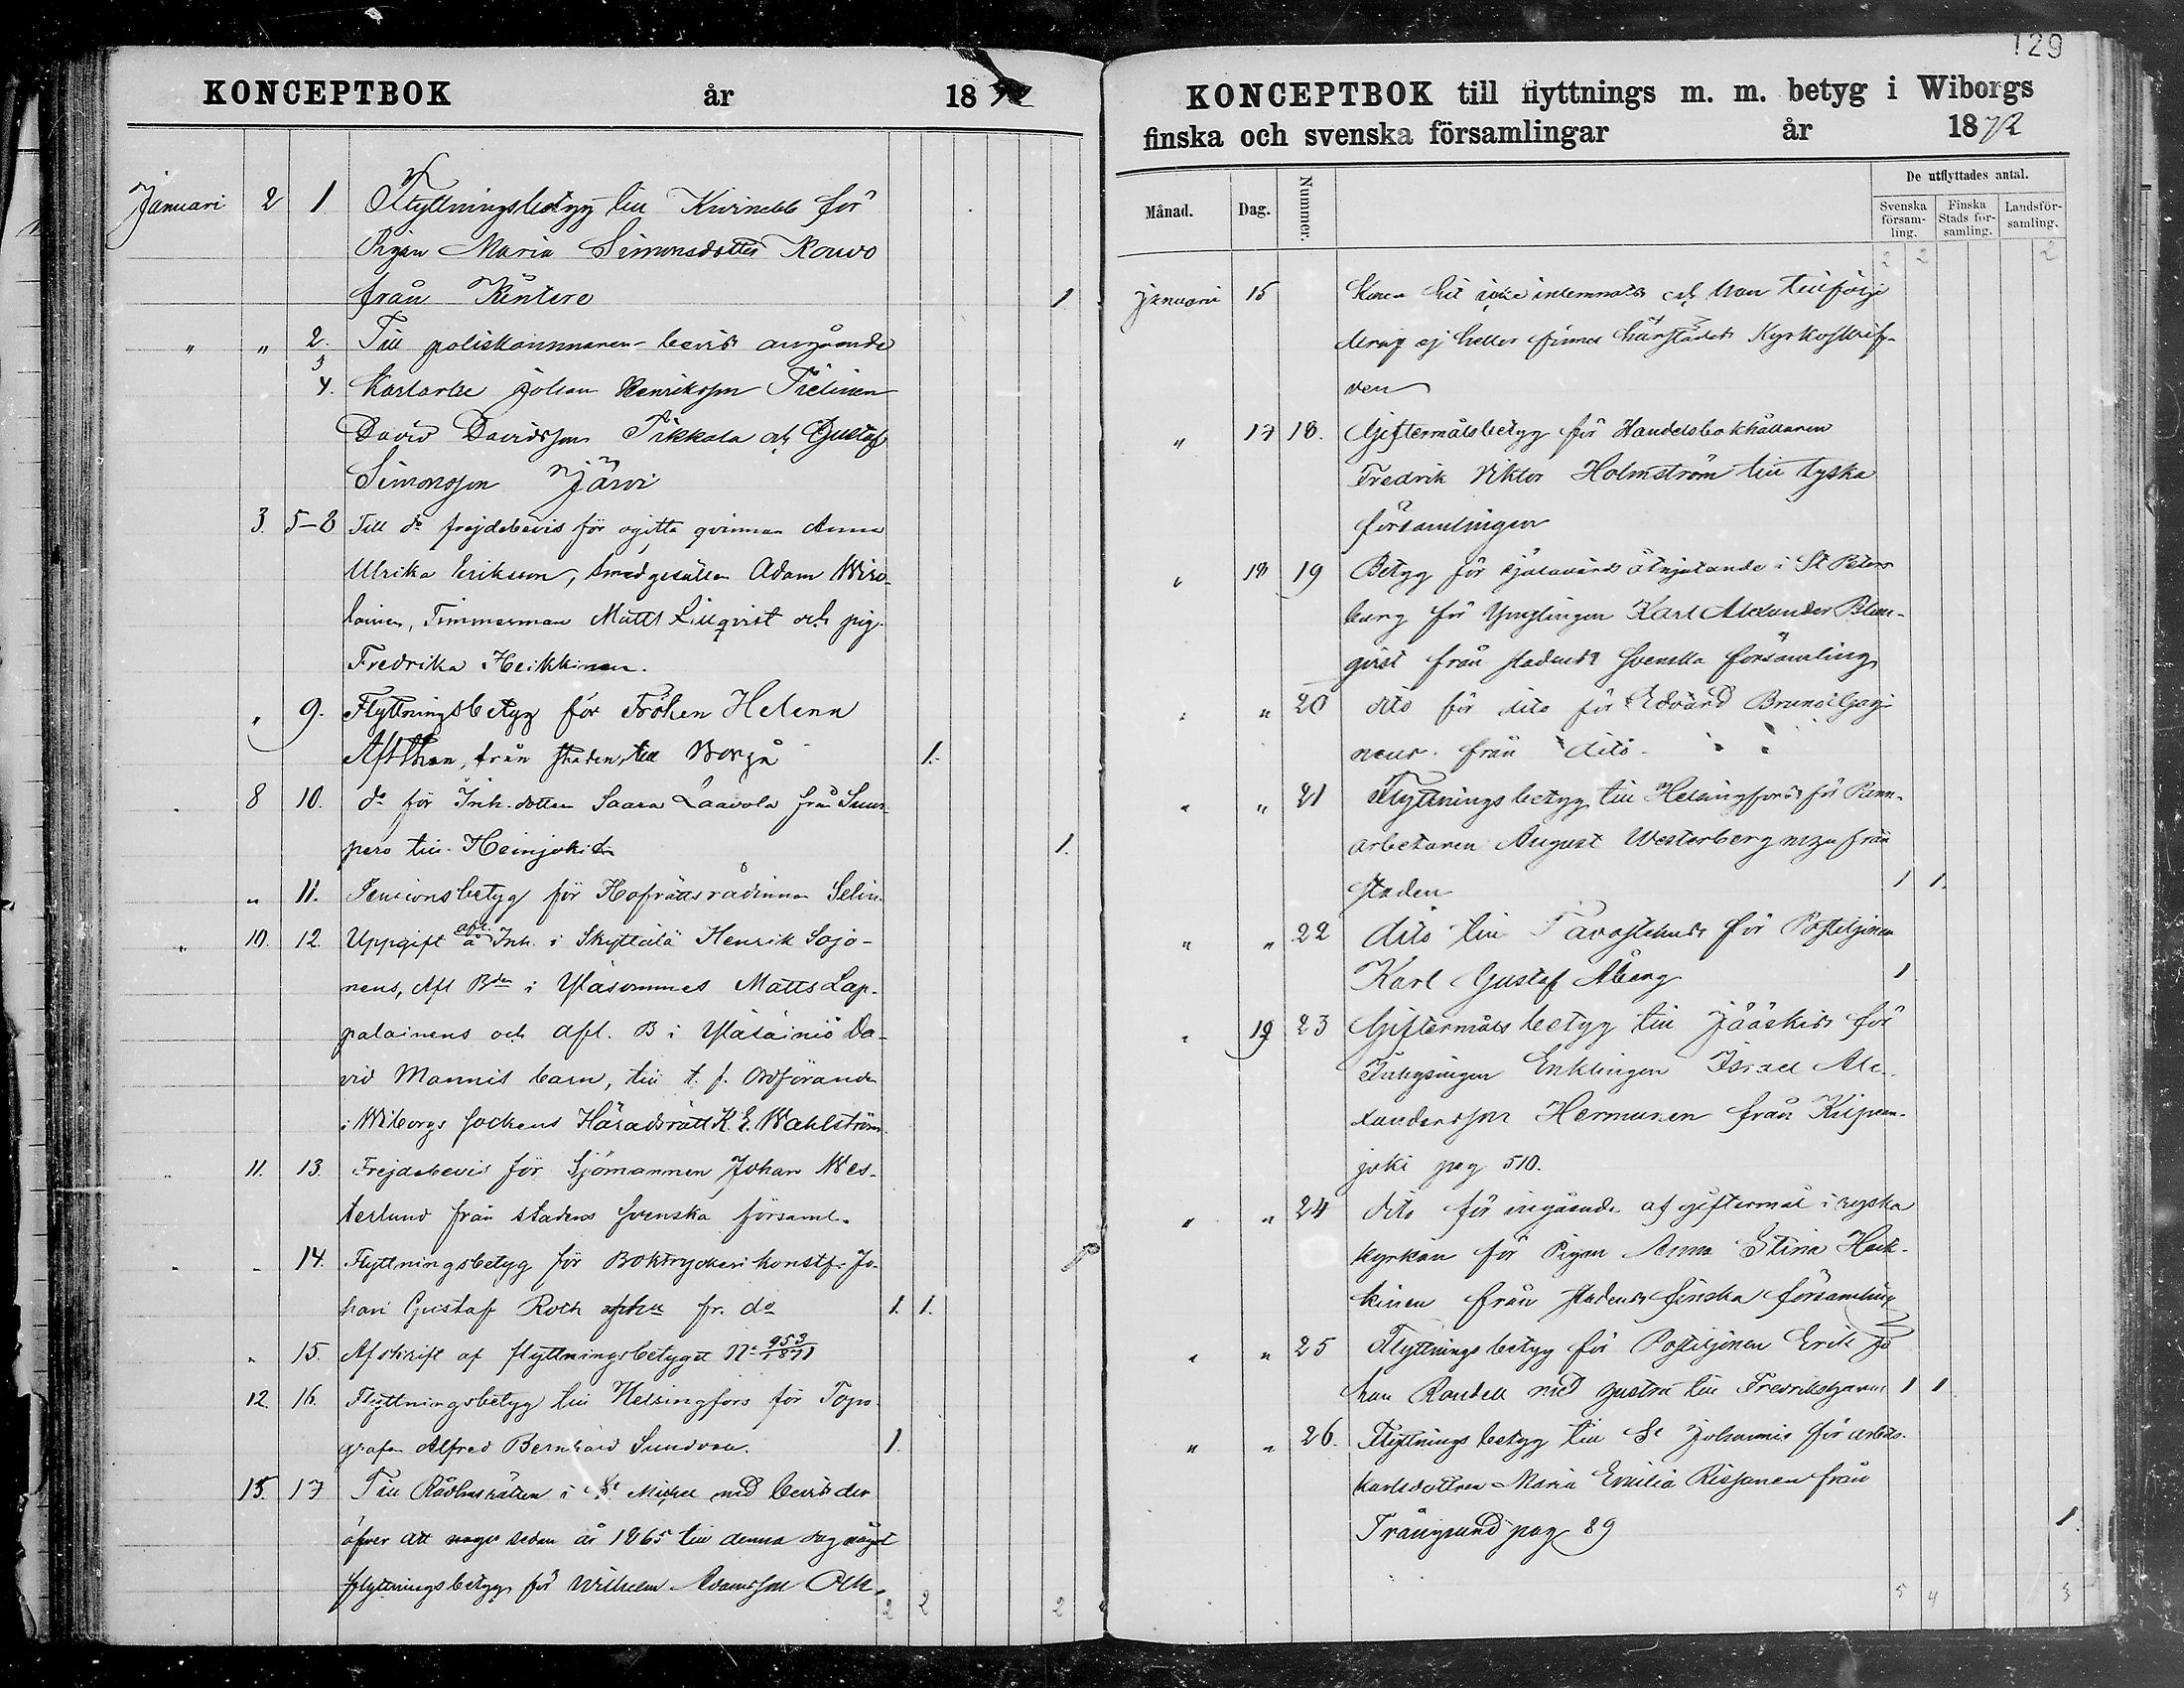 KONCEPTBOK år 1872
Januari 2 1 Flyttningsbetyg till Kivinebb för
Pigan Maria Simonsdotter Kouvo
från Käntere 1
" " 2. Till poliskammaren bevis angående
3
4. Karlarbe Johan Henriksson
David Davidsson Pikkala och Gustaf
Simonsson Järvi
3. 5-8 Till do frejdebevis för ogifta qvinnan Anna
Ulrika Eriksson, smedgesällen Adam Wiro-
lainen, Timmerman Matts Liliqvist och pig.
Fredrika Heikkinen.
" 9. Flyttningsbetyg för Fröken Helena
från staden, till Borgå 1.
8 10. do för Inh. dottern Saara Laavola från Suur-
pero till Heinjoki 1.
" 11. Pensionsbetyg för Hofrättsrådinnan Selin
" 10. 12. Uppgift å afl. Inh. i Skyttälä Henrik Sojo-
nens, Afl Bdn i Yläsommes Matts Lap-
palainens och afl. B i Da-
vid Mannis barn, till t. f. Ordföranden
i Wiborgs sockens Häradsrätt K. E. Wahlström.
11. 13. Frejdebevis för Sjömannen Johan Wes-
terlund från stadens svenska församl.
" 14. Flyttningsbetyg för Boktryckeri konstf. Jo-
han Gustaf Roth fr. do 1. 1.
" 15. Afskrift af flyttningsbetyget No 953/1871
12. 16. Flyttningsbetyg till Helsingfors för Typo-
grafen Alfred Bernhard Sundvall. 1.
15. 17 Till Rådhusrätten i St Michel med bevis der
öfver att sedan år 1865 till denna dag
flyttningsbetyg för Wilhelm Adamsson
2 2 2
129
KONCEPTBOK till flyttnings m. m. betyg i Wiborgs
finska och svenska församlingar år 1872
Månad. Dag. Nummer. De utflyttades antal.
Svenska församling. Finska Stads församling. Landsförsamling.
2 2 2
Januari 15 hit icke inlemnats och han till följe
deraf ej heller finnes härstädes Kyrkoskrif-
ven
" 17 18. Giftermålsbetyg för Handelsbokhållaren
Fredrik Viktor Holmström till tyska
församlingen
" 18 19 Betyg för själavårds åtnjutande i St Peters-
burg för Ynglingen Karl Alexander Blom-
qvist från stadens svenska församling
" " 20 dito för dito för Edvard Bruno
från dito
" " 21 Flyttningsbetyg till Helsingfors för
arbetaren August Westerberg från
staden 1 1.
" " 22 dito till Tavastehus för Postiljonen
Karl Gustaf Åberg 1
" 19 23 Giftermålsbetyg till Jääskis för
Enklingen Israel Ale-
xandersson Hermunen från Kiipan-
joki pag 510.
" " 24 dito för ingående af giftermål i ryska
kyrkan för Pigan Anna Stina Heik-
kinen från stadens finska församling
" " 25 Flyttningsbetyg för Postiljonen Erik Jo
han Randell med hustru till Fredrikshamn 1 1
" " 26. Flyttningsbetyg till St Johannis för arbets-
karlsdottren Maria Emilia Rissanen från
Trångsund pag 89 1.
5 4 3